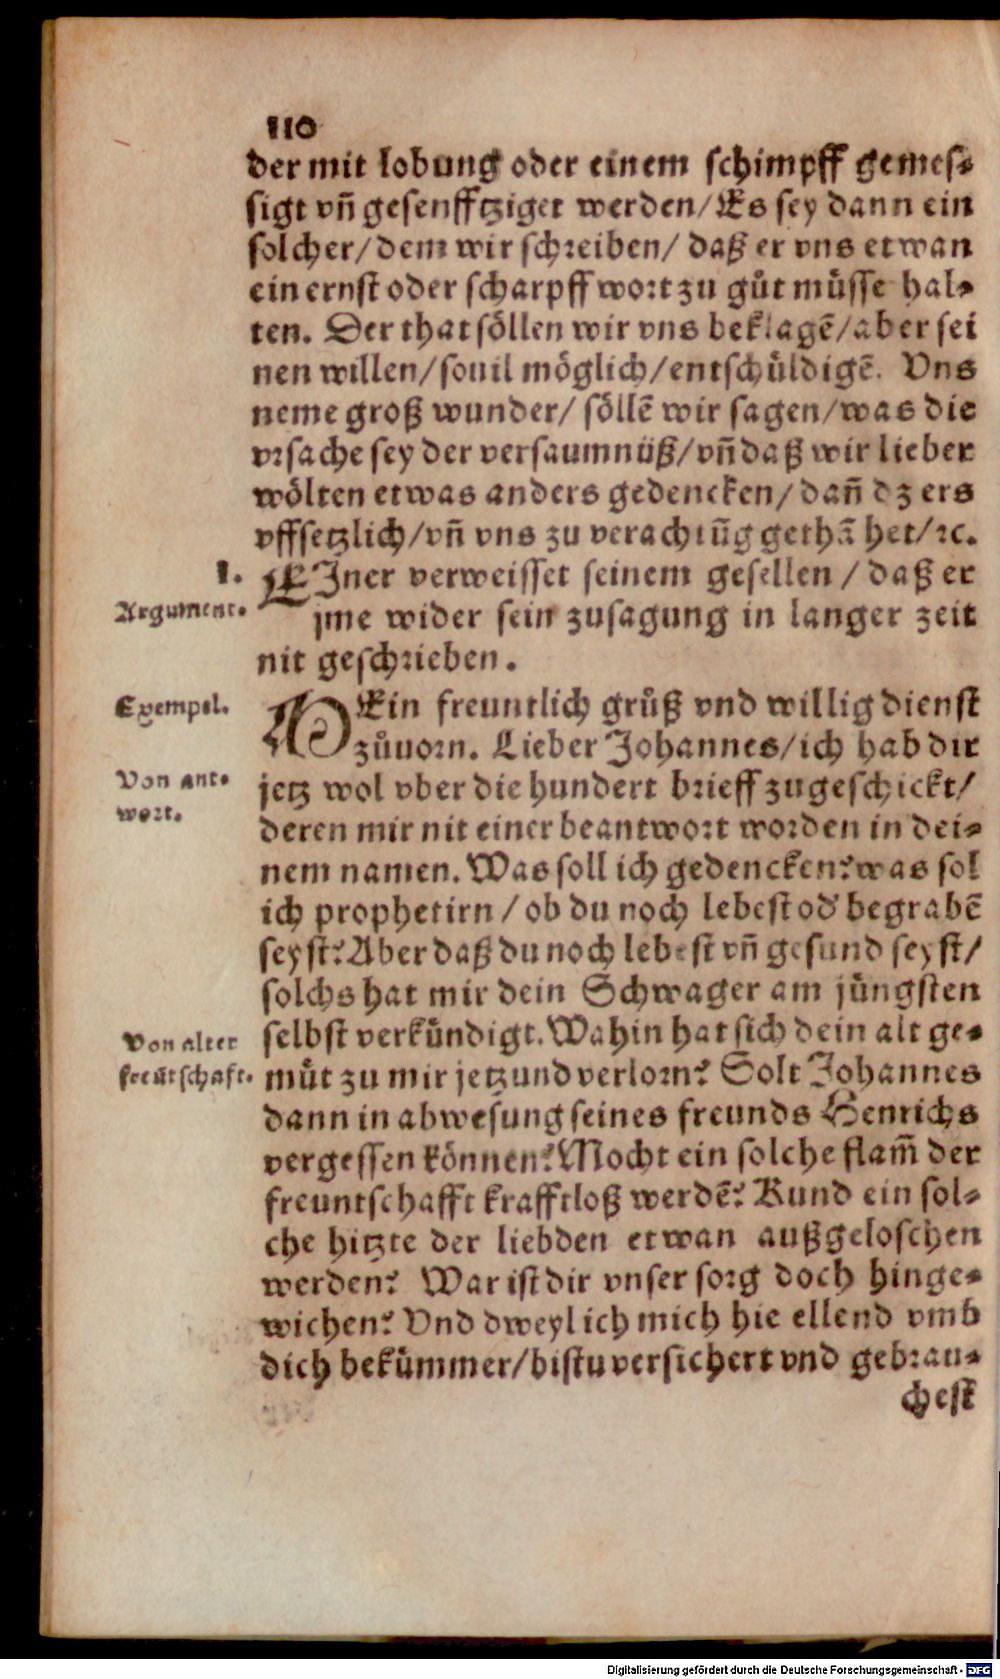 110
der mit lobung oder einem schimpff gemes⸗
sigt vñ gesenfftziget werden/ Es sey dann ein
solcher/ dem wir schreiben/ daß er vns etwan
ein ernst oder scharpff wort zu gůt müsse hal⸗
ten. Der that söllen wir vns beklagẽ/ aber sei
nen willen/ souil möglich/ entschüldigẽ. Vns
neme groß wunder/ söllẽ wir sagen/ was die
vrsache sey der versaumnüß/ vñ daß wir lieber
wölten etwas anders gedencken/ dañ dz ers
vffsetzlich/ vñ vns zu verachtũg gethã het/ ꝛc.
I.
Argument.
EJner verweisset seinem gesellen / daß er
jme wider sein zusagung in langer zeit
nit geschrieben.
Exempel.
MEin freuntlich grůß vnd willig dienst
zůuorn. Lieber Johannes/ ich hab dir
Von ant⸗
wort.
jetz wol vber die hundert brieff zugeschickt/
deren mir nit einer beantwort worden in dei⸗
nem namen. Was soll ich gedencken? was sol
ich prophetirn / ob du noch lebest od' begrabẽ
seyst? Aber daß du noch lebest vñ gesund seyst/
solchs hat mir dein Schwager am jüngsten
selbst verkündigt. Wahin hat sich dein alt ge⸗
Von alter
freũtschaft.
müt zu mir jetzund verlorn? Solt Johannes
dann in abwesung seines freunds Henrichs
vergessen können? Mocht ein solche flam̃ der
freuntschafft krafftloß werdẽ? Kund ein sol⸗
che hitzte der liebden etwan außgeloschen
werden? War ist dir vnser sorg doch hinge⸗
wichen? Vnd dweyl ich mich hie ellend vmb
dich bekümmer/ bistu versichert vnd gebrau⸗
chest
Digitalisierung gefördert durch die Deutsche Forschungsgemeinschaft - DFG